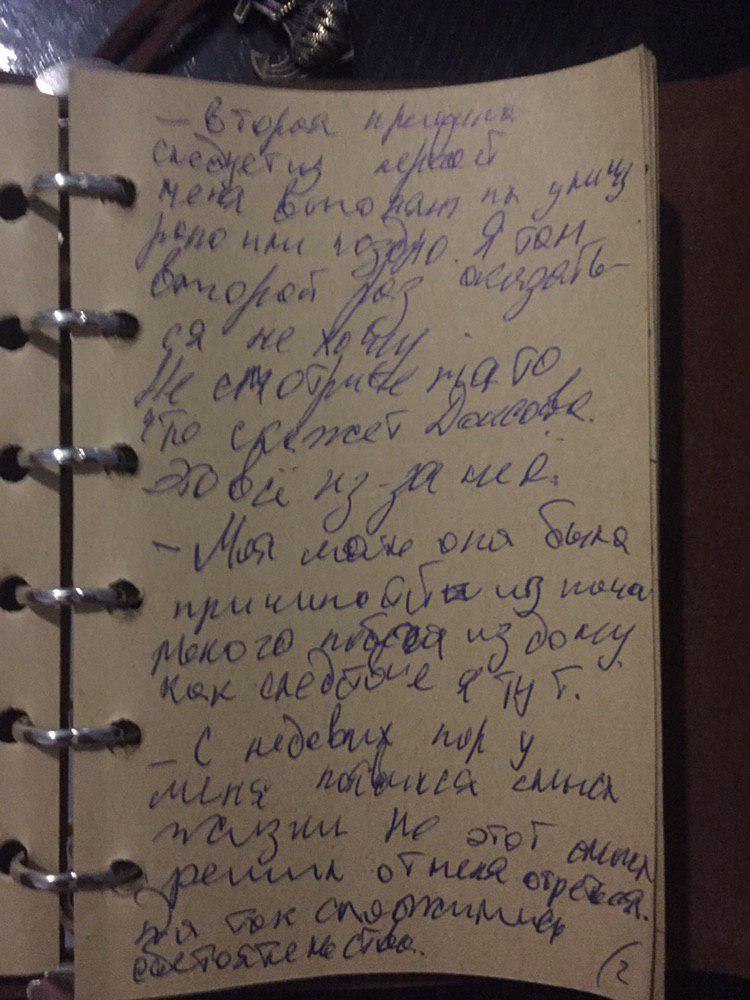 – Вторая причина
следует из первой
меня выгонят на улицу
рано или поздно. Я там
второй раз оказать-
ся не хочу.
Не смотрите на то
что скажет
это всё из-за неё.
– Моя мать она была
причиной из нача
моего побега из дому
как следствие я тут.
– С недавних пор у
меня появился смысл
жизни но этот смысл
решил от меня отречься.
так сложились
обстоятельства.
(2